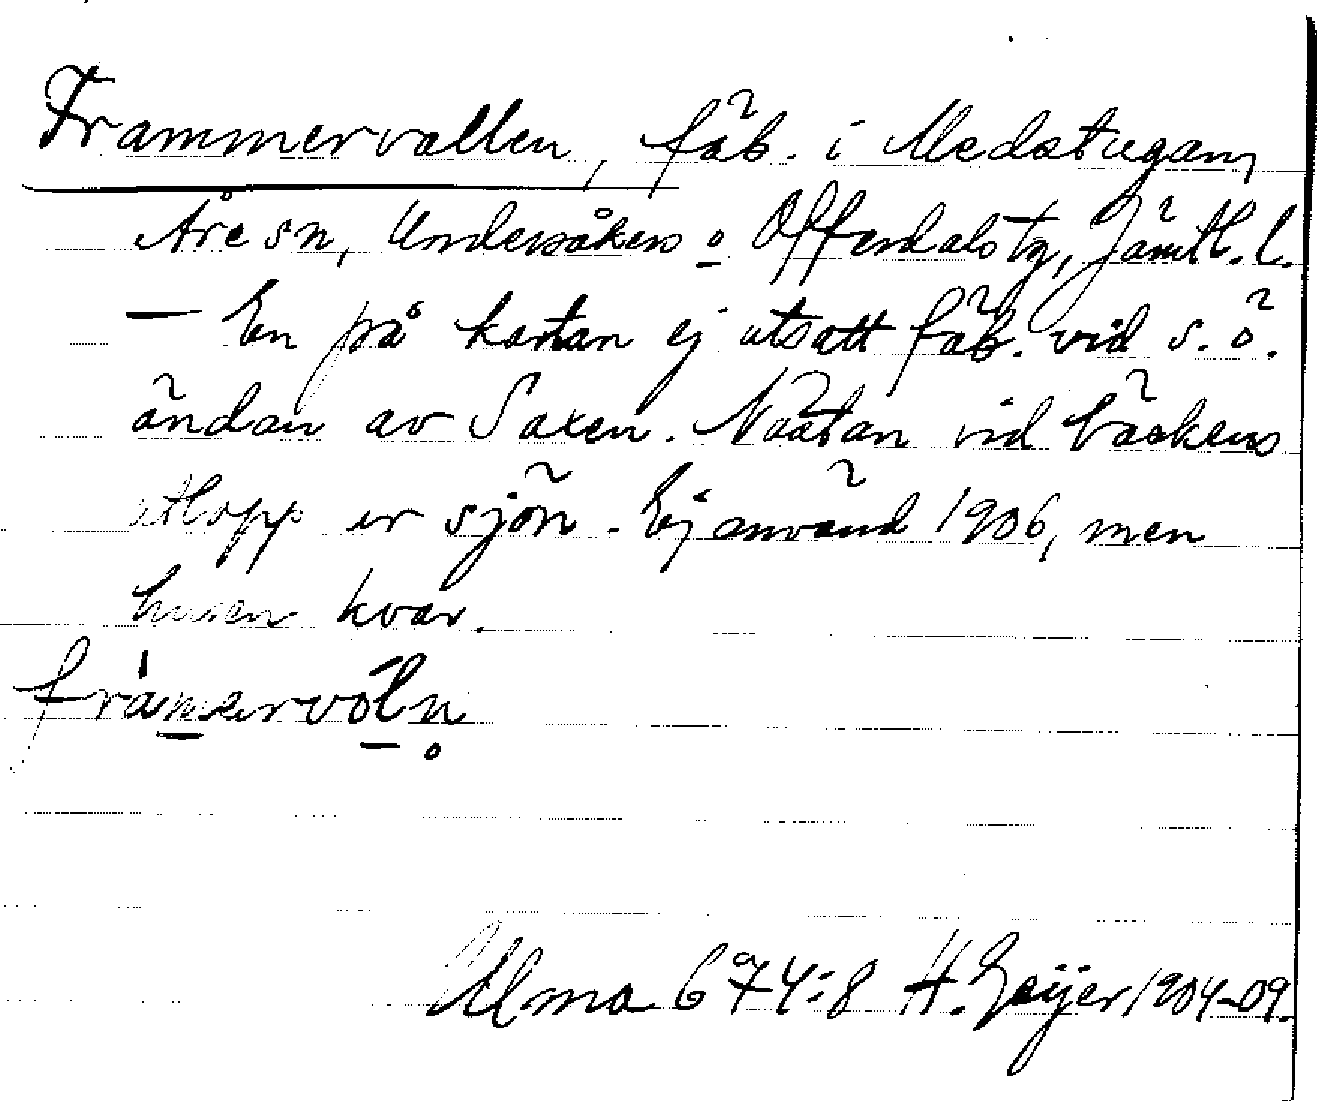 Frammervallen, fäb. i Medstugan,
Åre sn, Undersåkers o Offerdals tg, Jämtl. l.
— En på kartan ej utsatt fäb. vid s. ö.
ändan av Saxen. Nästan vid bäckens
utlopp ur sjön. Ej använd 1906, men
husen kvar.
främervoln
Ulma 674:8 H. Geijer 1904-09.